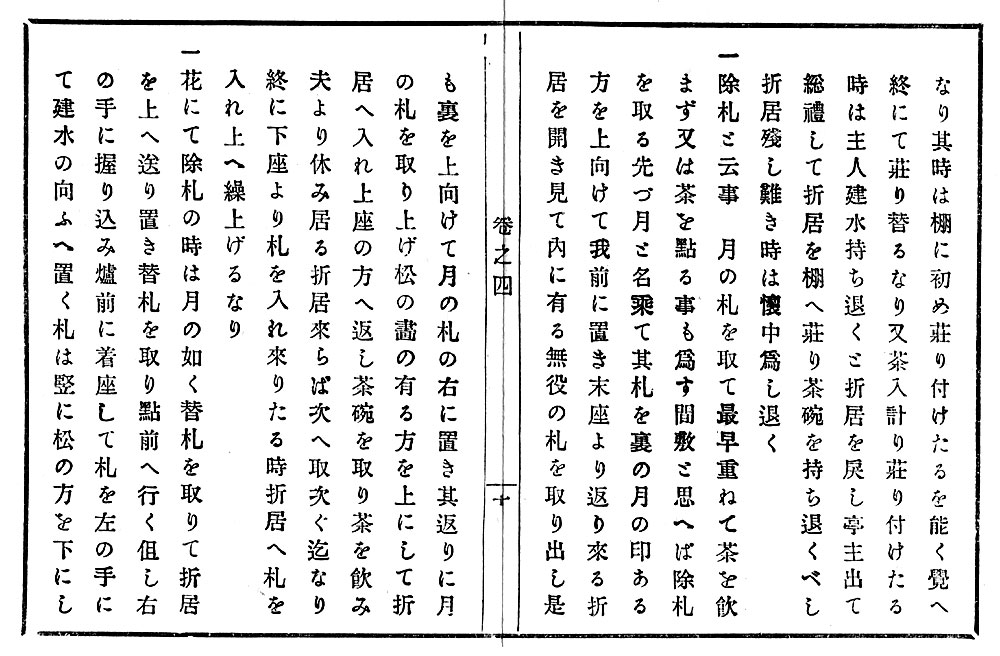 なり其時は棚に初め莊り付けたるを能く覺へ
終にて莊り替るなり又茶入計り莊り付けたる
時は主人建水持ち退くと折居を戾し亭主出て
總禮して折居を棚へ莊り茶碗を持ち退くべし
折居殘し難き時は懷中爲し退く
一除札と云事　月の札を取て最早重ねて茶を飮
まず又は茶を點る事も爲す間敷と思へば除札
を取る先づ月と名乘て其札を裏の月の印ある
方を上向けて我前に置き末座より返り來る折
居を開き見て內に有る無役の札を取り出し是
卷之四
十
も裏を上向けて月の札の右に置き其返りに月
の札を取り上げ松の畵の有る方を上にして折
居へ入れ上座の方へ返し茶碗を取り茶を飮み
夫より休み居る折居來らば次へ取次ぐ迄なり
終に下座より札を入れ來りたる時折居へ札を
入れ上へ繰上げるなり
一花にて除札の時は月の如く替札を取りて折居
を上へ送り置き替札を取り點前へ行く伹し右
の手に握り込み爐前に着座して札を左の手に
て建水の向ふへ置く札は竪に松の方を下にし